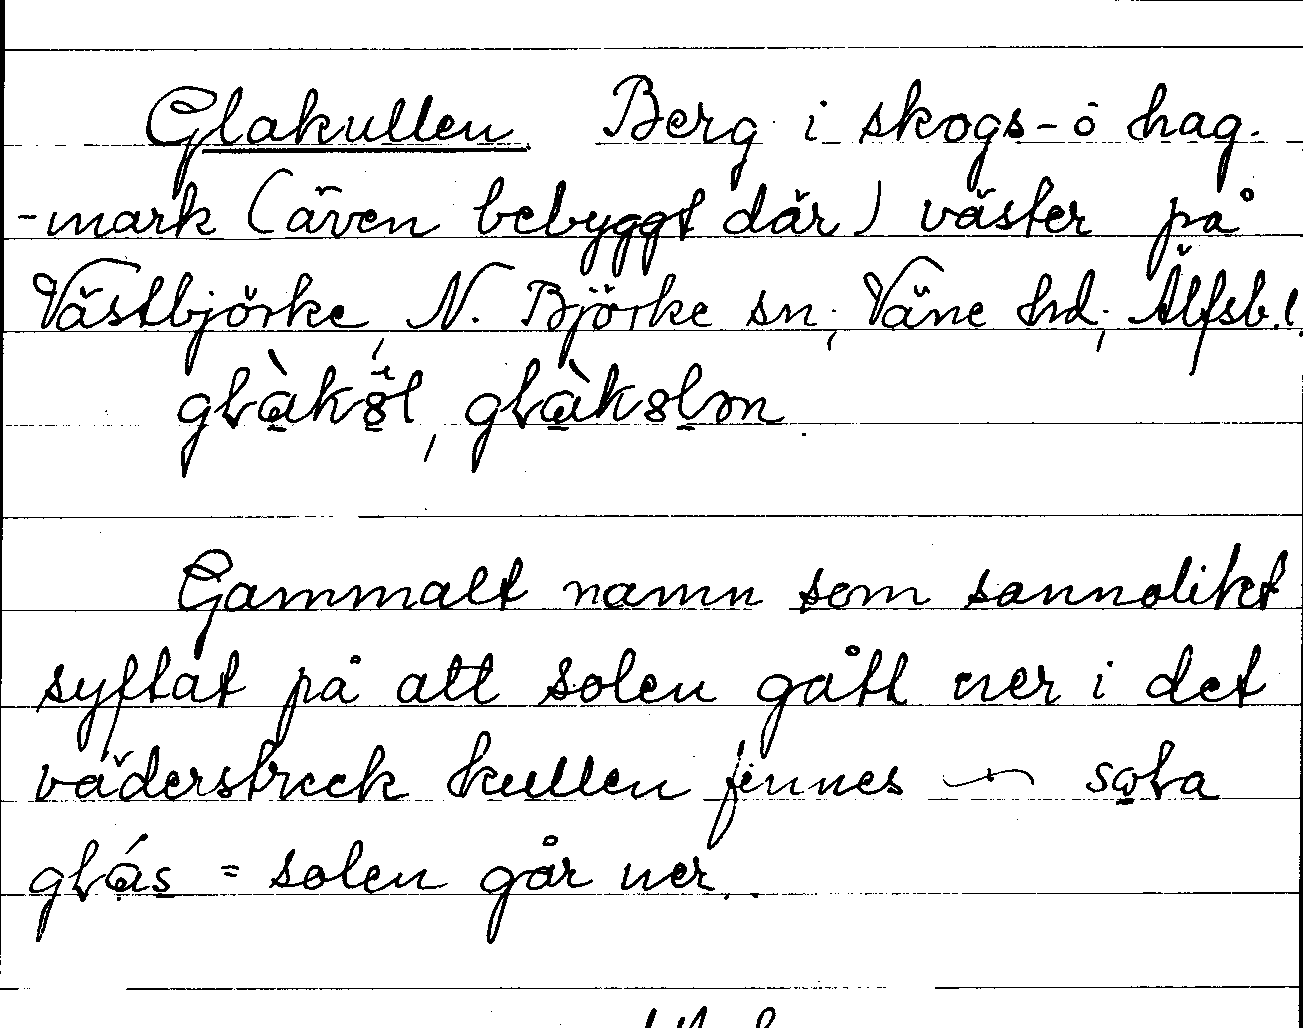 Glakullen Berg i skogs- o hag-
-mark (även bebyggt där) väster på
Västbjörke, N. Björke sn, Väne hd, Älfsb. l.
Gammalt namn som sannolikt
syftat på att solen gått ner i det
väderstreck kullen finnes
= solen går ner.